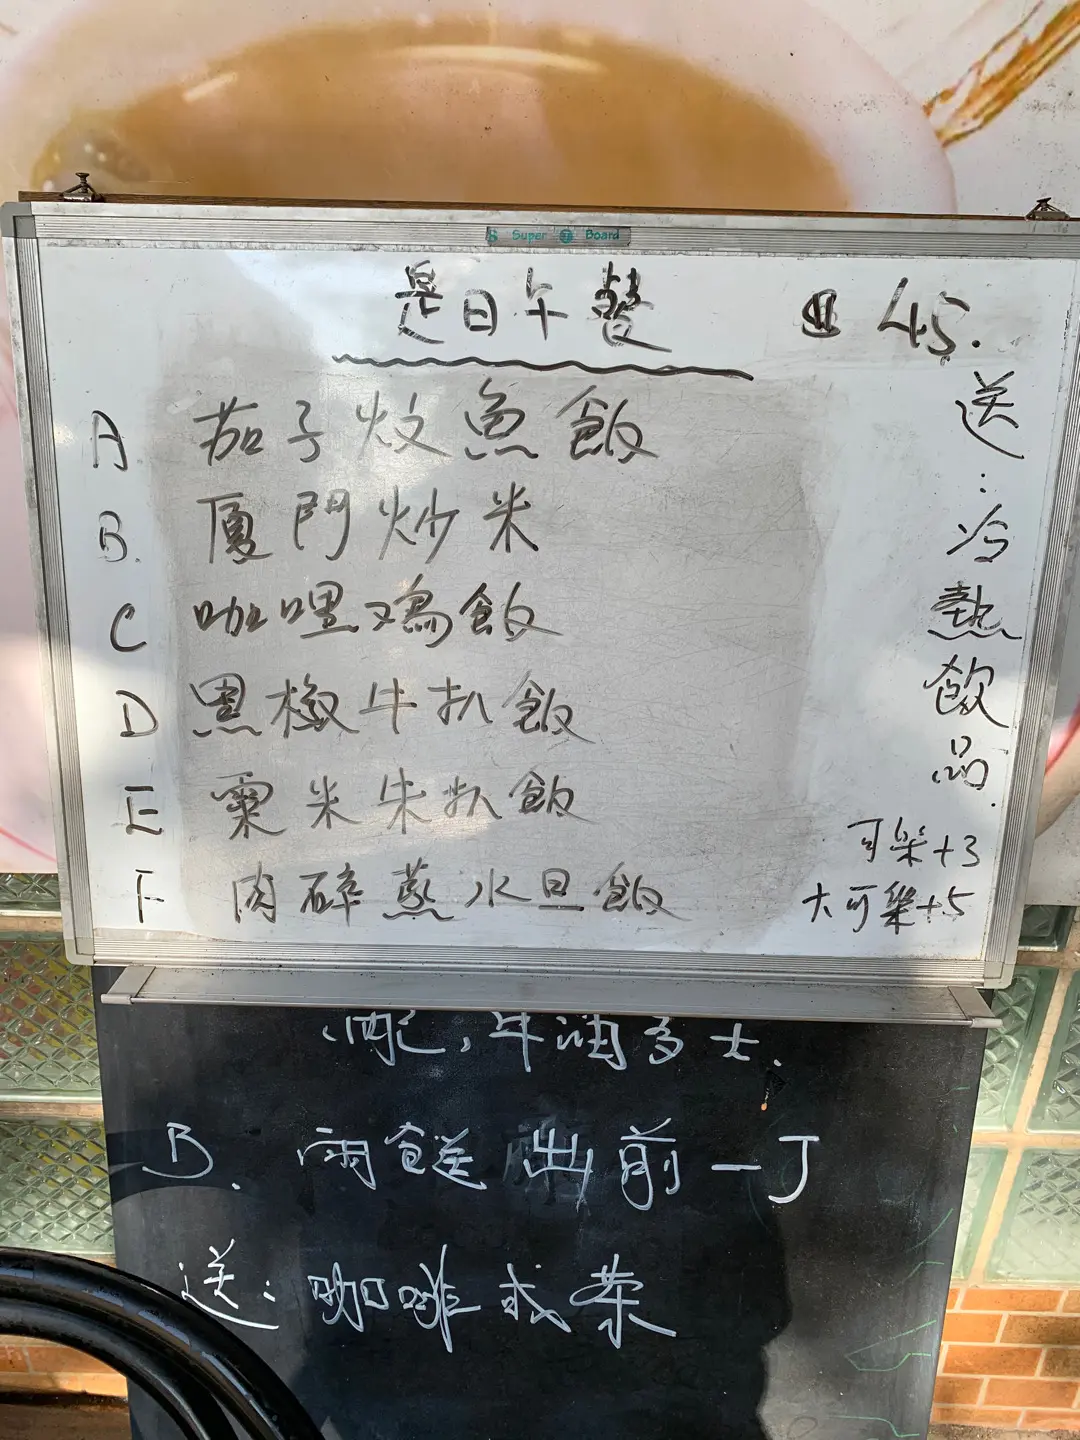 Super Board
是日午餐 $45.
A 茄子炆魚飯
B. 厦門炒米
C 咖喱鸡飯
D 黑椒牛扒飯
E 粟米朱扒飯
F 肉碎蒸水旦飯
送:冷熱飲品.
可樂+3
大可樂+5
配,牛油多士.
B. 雨餸出前一丁
送:咖啡或茶